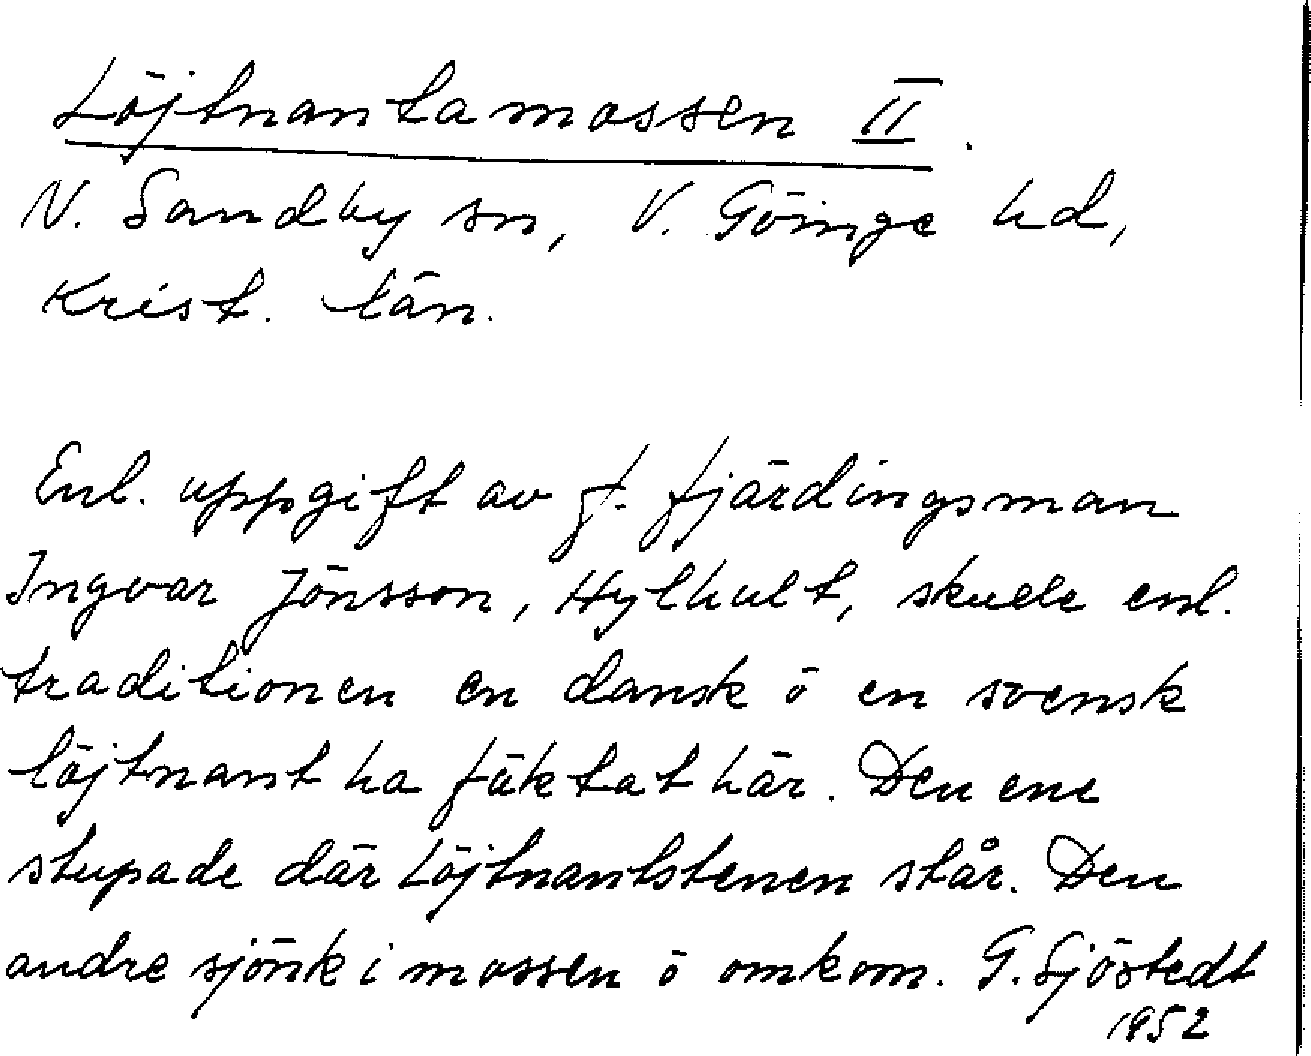 Löjtnantamossen II.
N. Sandby sn, V. Göinge hd,
Krist. län.
Enl. uppgift av f. fjärdingsman
Ingvar Jönsson, Hylhult, skulle enl.
traditionen en dansk ö en svensk
löjtnant ha fäktat här. Den ene
stupade där Löjtnantstenen står. Den
andre sjönk i mossen ö omkom. G. Sjöstedt
1952